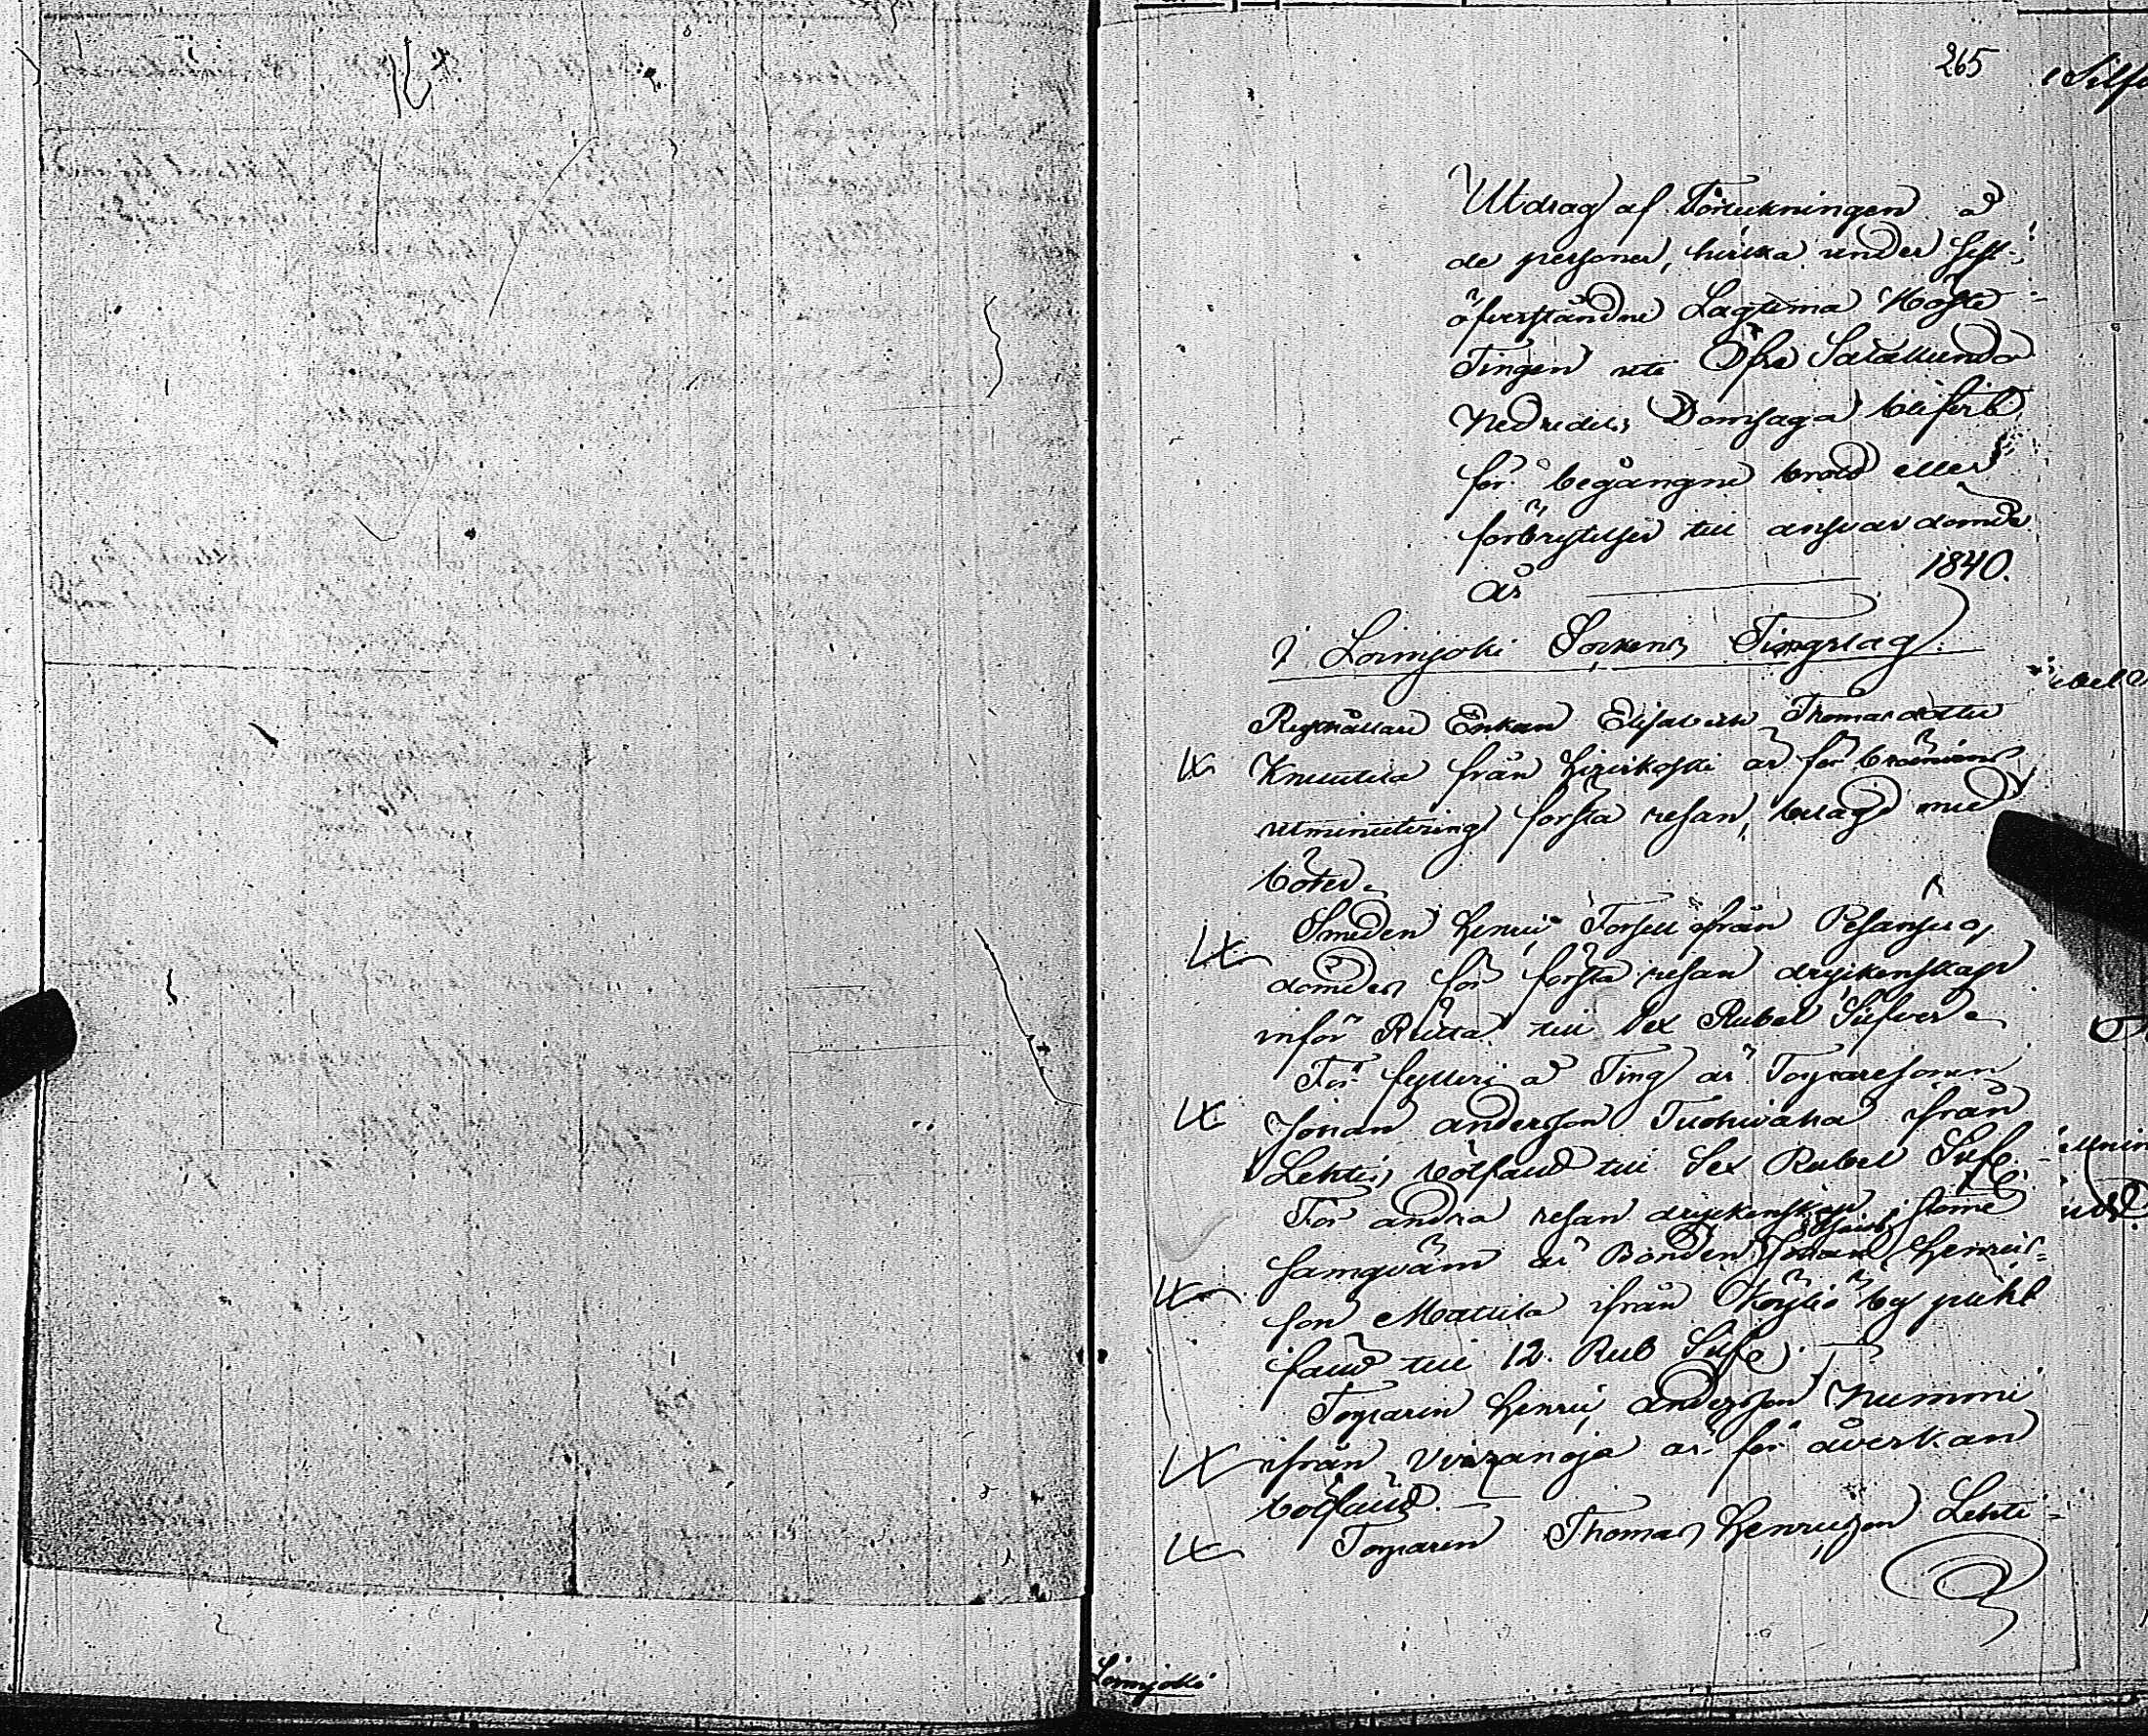 265
Utdrag af Förteckningen å
de personer, hvilka under sist-
öfverståndne Lagtima Höste
Tingen uti Öfre Satakunda
Nedredels Domsaga blifvit
för begångne brott eller
förbrytelser till answar dömde
År 1840.
I Loimjoki Sockens Tingslag.
Rusthållare Enkan Elisabeth Thomasdotter
Knuutila från Hirvikoski är för bränvins
utminutering första resan, belagd med
böter.
Smeden Henric Forsell ifrån Pesänsuo,
dömdes för första resan dryckenskap
inför Rätta till sex Rubel Silfver.
För fylleri å Ting är Torparesonen
Johan Andersson Tuohivaha ifrån
Lehtis, bötfäld till Sex Rubel Silf.
För andra resan dryckenskap i stämme
samqväm är Bonden Johan Henrics-
son Mattila ifrån Köyliö by pliht
fäld till 12. Rub Silf.
Torparen Henric Andersson Nummi
ifrån Virranoja är för åverkan
bötfäld.
Torparen Thomas Henricsson Lehti-
Loimjoki